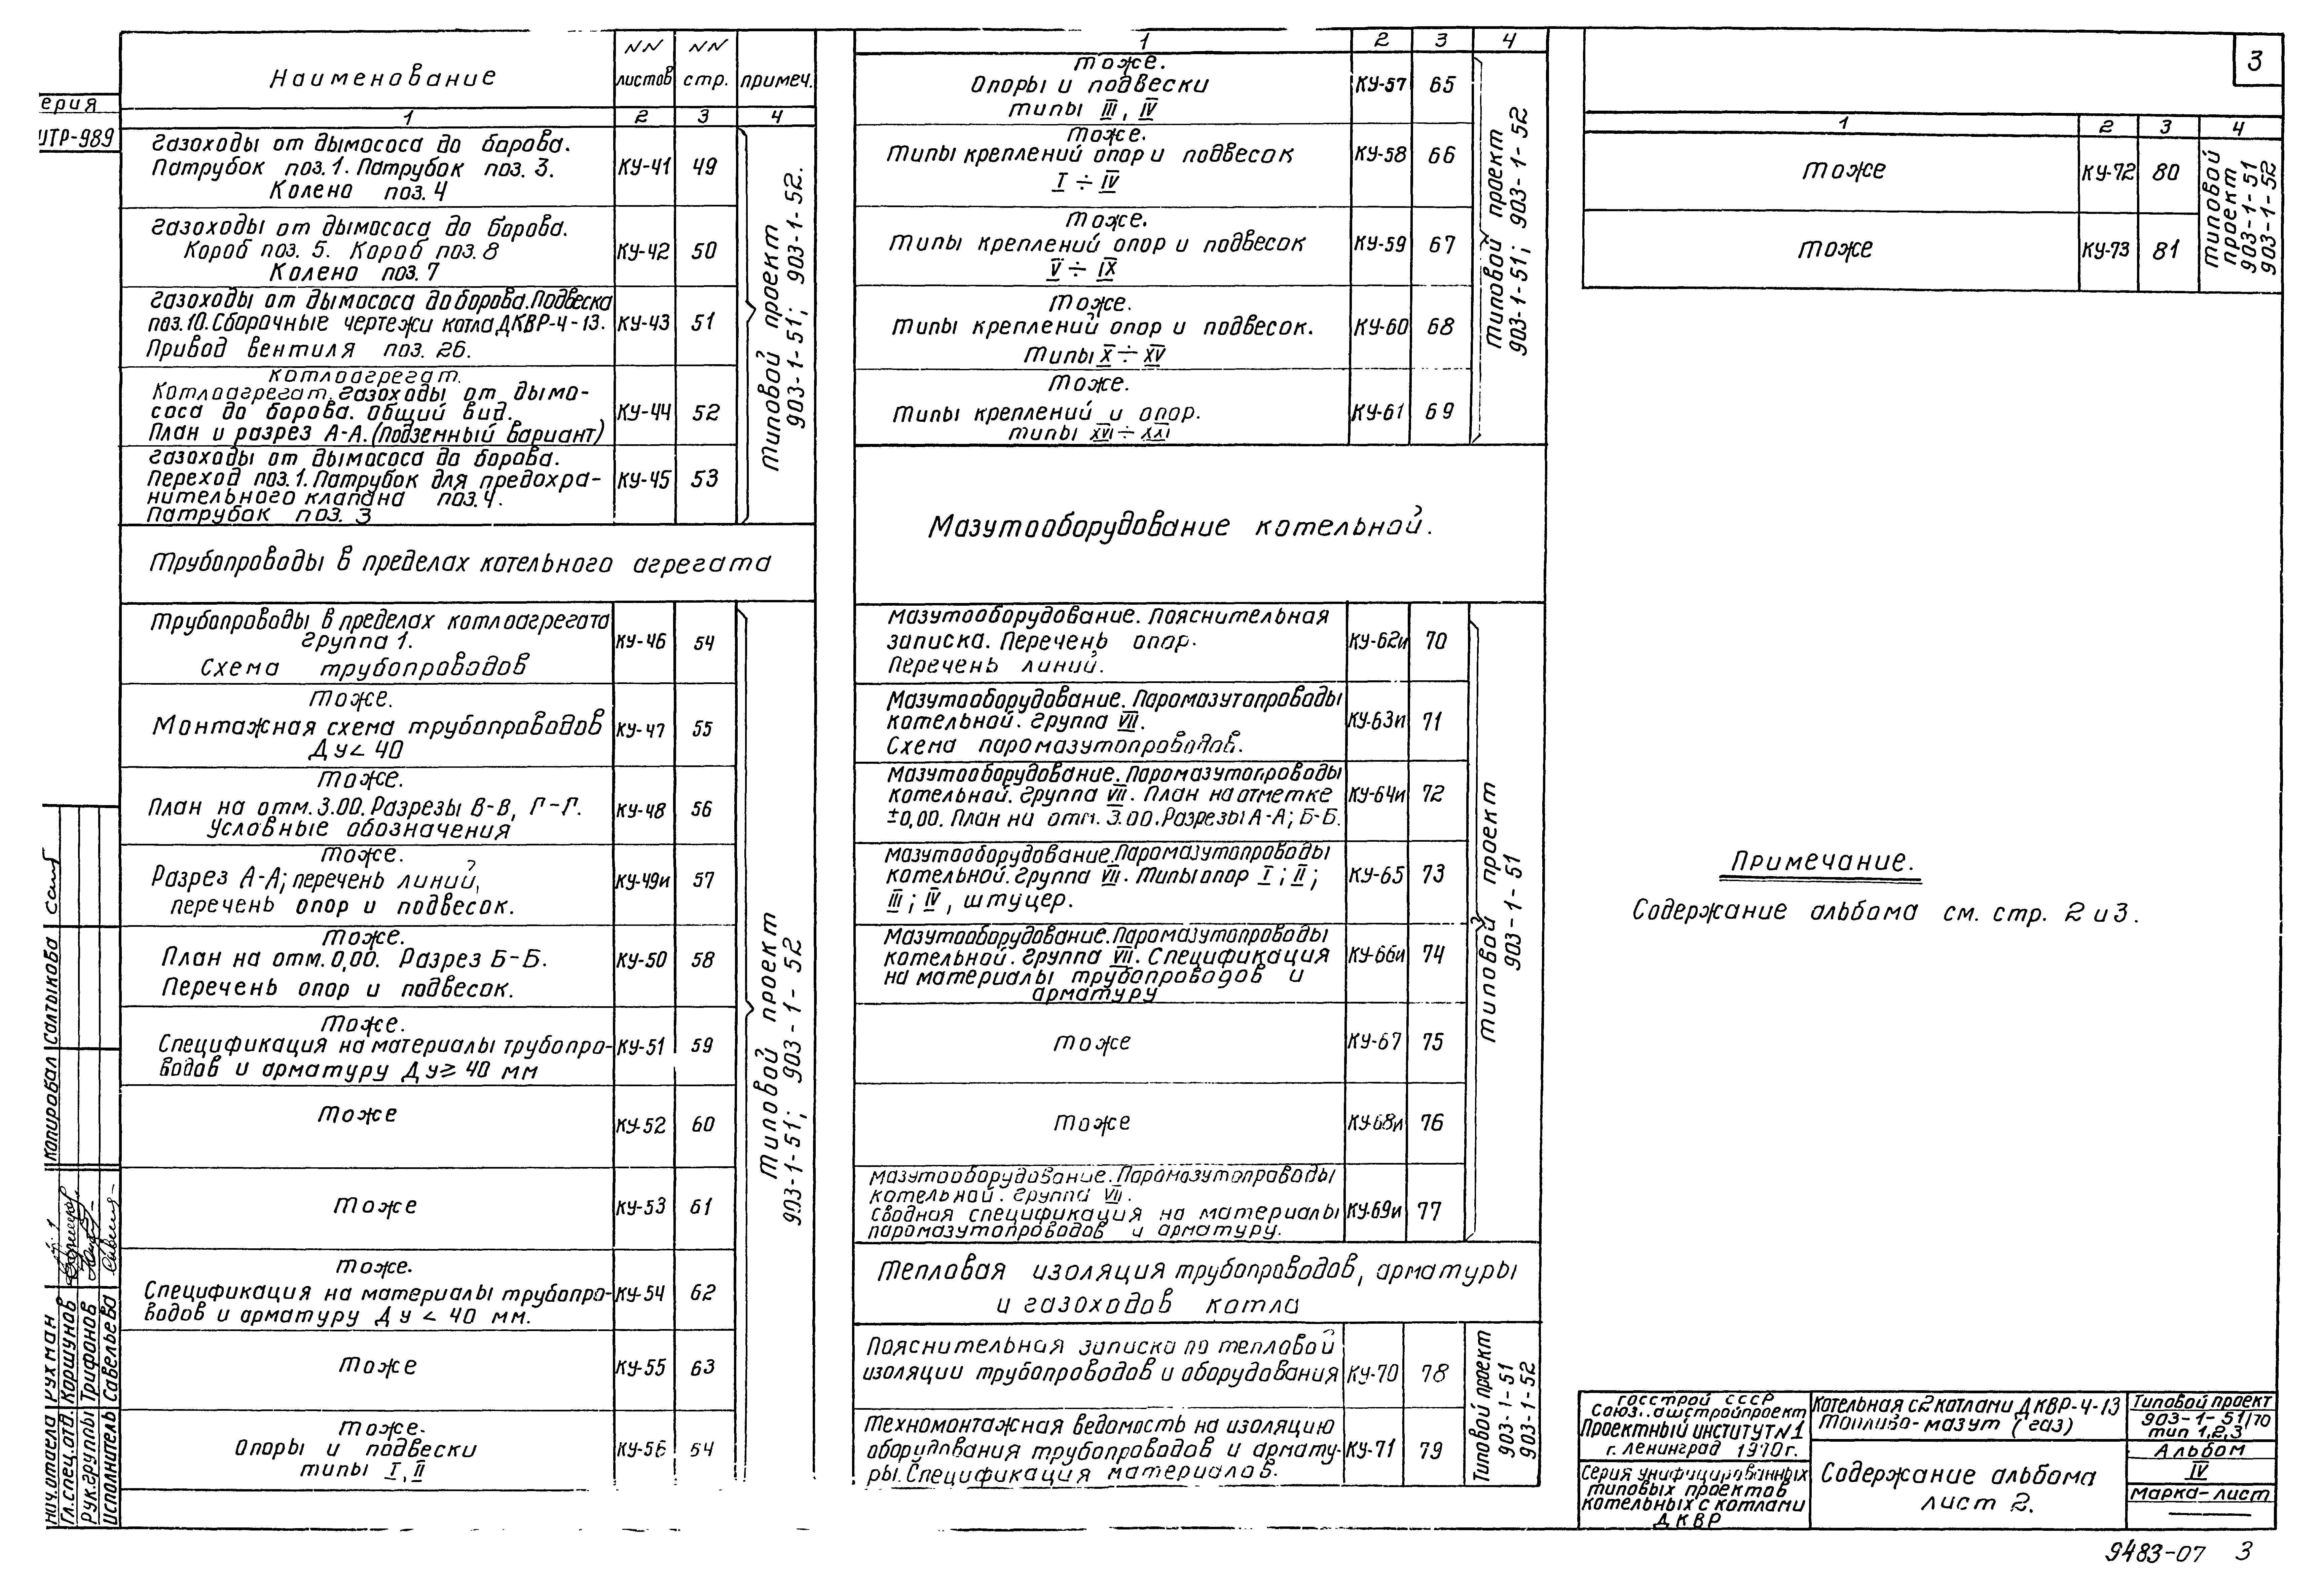 3
ерия
ИТР-989
Наименование
NN листов
NN стр.
примеч.
1 2 3 4
Газоходы от дымососа до борова.
Патрубок поз.1. Патрубок поз. 3. КУ-41 49
Колено поз.4
Газоходы от дымососа до борова.
Короб поз. 5. Короб поз. 8 КУ-42 50
Колено поз. 7
Газоходы от дымососа до борова. Подвеска
поз.10. Сборочные чертежи котла ДКВР-4-13. КУ-43 51
Привод вентиля поз. 26.
Котлоагрегат.
Котлоагрегат. Газоходы от дымо-
соса до борова. Общий вид. КУ-44 52
План и разрез А-А. (Подземный вариант)
Газоходы от дымососа до борова.
Переход поз.1. Патрубок для предохра- КУ-45 53
нительного клапана поз.4.
Патрубок поз. 3
Типовой проект
903-1-51; 903-1-52.
Трубопроводы в пределах котельного агрегата
Трубопроводы в пределах котлоагрегата
Группа 1. КУ-46 54
Схема трубопроводов
Тоже.
Монтажная схема трубопроводов КУ-47 55
Ду < 40
Тоже.
План на отм. 3.00. Разрезы В-В, Г-Г. КУ-48 56
Условные обозначения
Тоже.
Разрез А-А; перечень линий, КУ-49и 57
перечень опор и подвесок.
Тоже.
План на отм. 0,00. Разрез Б-Б. КУ-50 58
Перечень опор и подвесок.
Тоже.
Спецификация на материалы трубопро- КУ-51 59
водов и арматуру Ду ≥ 40 мм
Тоже КУ-52 60
Тоже КУ-53 61
Тоже.
Спецификация на материалы трубопро- КУ-54 62
водов и арматуру Ду < 40 мм.
Тоже КУ-55 63
Тоже.
Опоры и подвески КУ-56 64
типы I, II
Типовой проект
903-1-51; 903-1-52
1 2 3 4
Тоже.
Опоры и подвески КУ-57 65
типы III, IV
Тоже.
Типы креплений опор и подвесок КУ-58 66
I ÷ IV
Тоже.
Типы креплений опор и подвесок КУ-59 67
V ÷ IX
Тоже.
Типы креплений опор и подвесок. КУ-60 68
Типы X ÷ XV
Тоже.
Типы креплений и опор. КУ-61 69
типы XVI ÷ XXI
Типовой проект
903-1-51; 903-1-52
Мазутооборудование котельной.
Мазутооборудование. Пояснительная
записка. Перечень опор. КУ-62и 70
Перечень линий.
Мазутооборудование. Паромазутопроводы
котельной. Группа VII. КУ-63и 71
Схема паромазутопроводов.
Мазутооборудование. Паромазутопроводы
котельной. Группа VII. План на отметке КУ-64и 72
±0,00. План на отм. 3.00. Разрезы А-А; Б-Б.
Мазутооборудование. Паромазутопроводы
котельной. Группа VII. Типы опор I; II; КУ-65 73
III; IV, штуцер.
Мазутооборудование. Паромазутопроводы
котельной. Группа VII. Спецификация КУ-66и 74
на материалы трубопроводов и
арматуру
Тоже КУ-67 75
Тоже КУ-68и 76
Мазутооборудование. Паромазутопроводы
котельной. Группа VII.
Сводная спецификация на материалы КУ-69и 77
паромазутопроводов и арматуру.
Типовой проект
903-1-51
Тепловая изоляция трубопроводов, арматуры
и газоходов котла
Пояснительная записка по тепловой
изоляции трубопроводов и оборудования КУ-70 78
Техномонтажная ведомость на изоляцию
оборудования трубопроводов и армату- КУ-71 79
ры. Спецификация материалов.
Типовой проект
903-1-51
903-1-52
1 2 3 4
Тоже КУ-72 80
Тоже КУ-73 81
Типовой
проект
903-1-51
903-1-52
Примечание.
Содержание альбома см. стр. 2 и 3.
Госстрой СССР
Союз..ашстройпроект
Проектный институт N1
г. Ленинград 1970г.
Серия унифицированных
типовых проектов
котельных с котлами
ДКВР
Котельная с 2 котлами ДКВР-4-13
Топливо-мазут (газ)
Содержание альбома
лист 2.
Типовой проект
903-1-51/70
тип 1,2,3
Альбом
IV
Марка-лист
Копировал Салтыкова
Нач. отдела Рухман
Гл. спец. отд. Коршунов
Рук. группы Трифанов
Исполнитель Савельева
9483-07 3